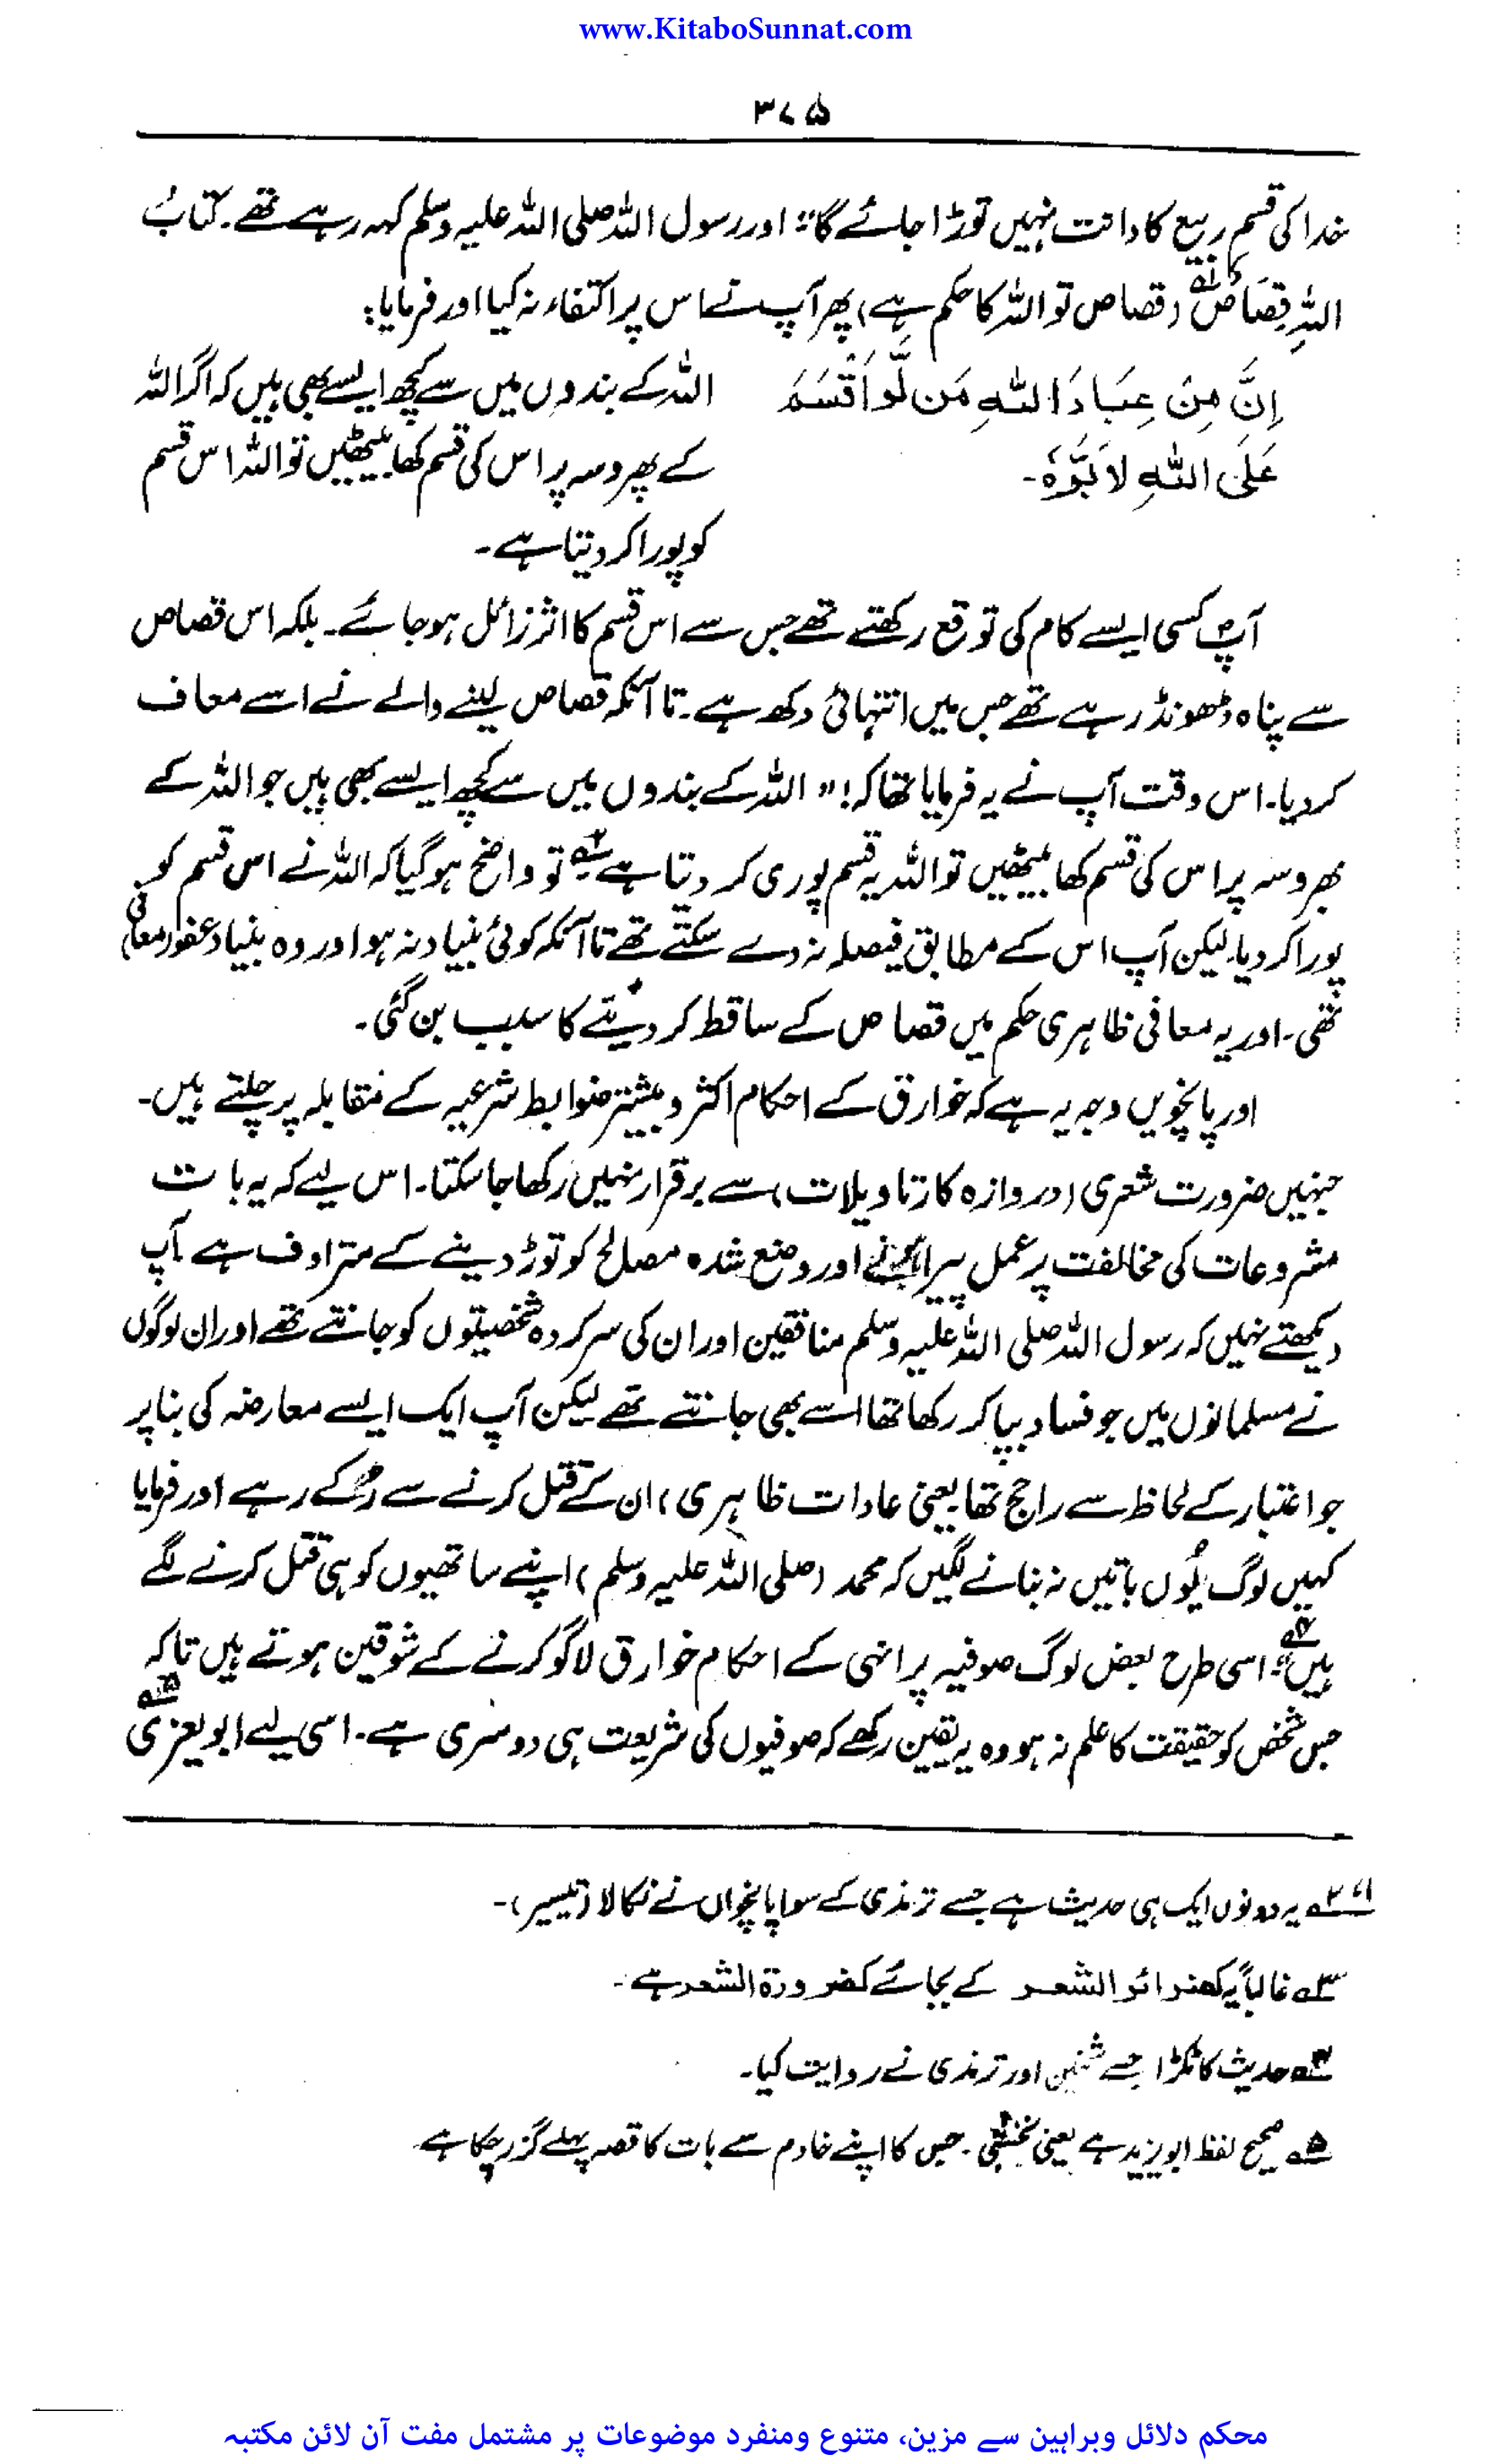 www.KitaboSunnat.com
۳۷۵
خدا کی قسم ربیع کا دانت نہیں توڑا جائے گا" اور رسول اللہ صلی اللہ علیہ وسلم کہہ رہے تھے۔ کتابُ
اللہِ قِصَاصٌ (قصاص تو اللہ کا حکم ہے) پھر آپ نے اس پر اکتفاء نہ کیا اور فرمایا:
اِنَّ مِنْ عِبَادَ اللّٰہِ مَن لَّو اَقْسَمَ
عَلَی اللّٰہِ لاَبَرَّہٗ۔
اللہ کے بندوں میں سے کچھ ایسے بھی ہیں کہ اگر اللہ
کے بھروسہ پر اس کی قسم کھا بیٹھیں تو اللہ اس قسم
کو پورا کر دیتا ہے۔
آپؐ کسی ایسے کام کی توقع رکھتے تھے جس سے اس قسم کا اثر زائل ہو جائے۔ بلکہ اس قصاص
سے پناہ ڈھونڈ رہے تھے جس میں انتہائی دکھ ہے۔ تا آنکہ قصاص لینے والے نے اسے معاف
کر دیا۔ اس وقت آپ نے یہ فرمایا تھا کہ! "اللہ کے بندوں میں سے کچھ ایسے بھی ہیں جو اللہ کے
بھروسہ پر اس کی قسم کھا بیٹھیں تو اللہ یہ قسم پوری کر دیتا ہے" تو واضح ہو گیا کہ اللہ نے اس قسم کو
پورا کر دیا۔ لیکن آپ اس کے مطابق فیصلہ نہ دے سکتے تھے تا آنکہ کوئی بنیاد نہ ہو اور وہ بنیاد عفو (معافی)
تھی۔ اور یہ معافی ظاہری حکم میں قصاص کے ساقط کر دینے کا سبب بن گئی۔
اور پانچویں وجہ یہ ہے کہ خوارق کے احکام اکثر و بیشتر ضوابط شرعیہ کے مقابلہ پر چلتے ہیں۔
جنہیں ضرورت شعری (دروازہ کار تاویلات) سے برقرار نہیں رکھا جا سکتا۔ اس لیے کہ یہ بات
مشروعات کی مخالفت پر عمل پیرا ہونے اور وضع شدہ مصالح کو توڑ دینے کے مترادف ہے آپ
دیکھتے نہیں کہ رسول اللہ صلی اللہ علیہ وسلم منافقین اور ان کی سرکردہ شخصیتوں کو جانتے تھے اور ان لوگوں
نے مسلمانوں میں جو فساد بپا کر رکھا تھا اسے بھی جانتے تھے لیکن آپ ایک ایسے معارضہ کی بنا پر
جو اعتبار کے لحاظ سے راجح تھا (یعنی عادات ظاہری) ان کے قتل کرنے سے رُکے رہے اور فرمایا
کہیں لوگ یُوں باتیں نہ بنانے لگیں کہ محمد (صلی اللہ علیہ وسلم) اپنے ساتھیوں کو ہی قتل کرنے لگے
ہیں"۴؎ اسی طرح بعض لوگ صوفیہ پر انہی کے احکام خوارق لاگو کرنے کے شوقین ہوتے ہیں تاکہ
جس شخص کو حقیقت کا علم نہ ہو وہ یہ یقین رکھے کہ صوفیوں کی شریعت ہی دوسری ہے۔ اسی لیے ابو یعزی۵؎
۱، ۲؎ یہ دونوں ایک ہی حدیث ہے جسے ترمذی کے سوا پانچواں نے نکالا (تیسیر)۔
۳؎ غالباً یہ کضرائر الشعر کے بجائے کضرورۃ الشعر ہے۔
۴؎ حدیث کا ٹکڑا جسے شیخین اور ترمذی نے روایت کیا۔
۵؎ صحیح لفظ ابو یزید ہے یعنی نخشبی۔ جس کا اپنے خادم سے بات کا قصہ پہلے گزر چکا ہے
محکم دلائل وبراہین سے مزین، متنوع ومنفرد موضوعات پر مشتمل مفت آن لائن مکتبہ